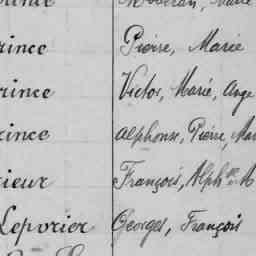 rince Pierre, Marie
rince Victor, Marie, Ange
rince Alphonse, Pierre, Mar
rieur François, Alph.se M
Leporier Georges, François